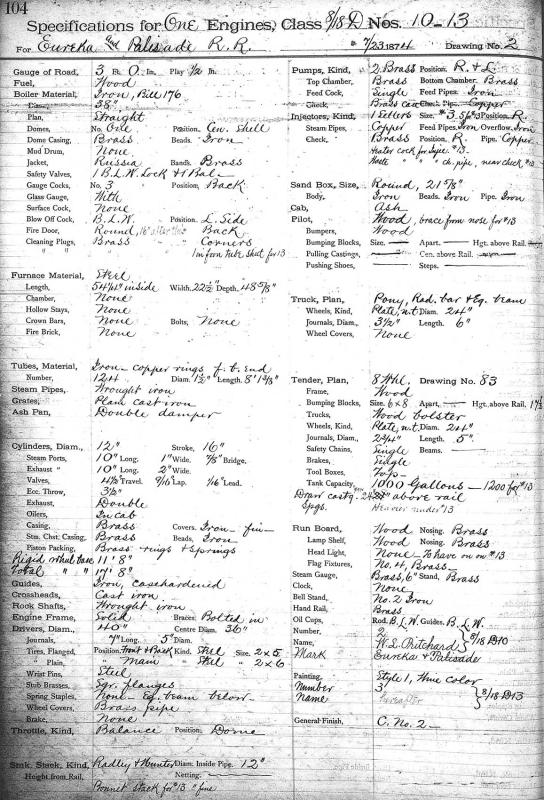 104
Specifications for One Engines, Class 8/18 D Nos. 10-13
For Eureka and Palisade R.R. 7/23.1874 Drawing No. 2
Gauge of Road, 3 Ft. 0 In. Play 1/2 In.
Fuel, Wood
Boiler Material, Iron, Bill 176
Diam. 38"
Plan, Straight
Domes, No. One Position, Cen. Shell
Dome Casing, Brass Beads, Iron
Mud Drum, None
Jacket, Russia Bands, Brass
Safety Valves, 1 B.L.W. Lock & 1 Bal.
Gauge Cocks, No. 3 Position, Back
Glass Gauge, With
Surface Cock, None
Blow Off Cock, B.L.W. Position, L. Side
Fire Door, Round, Back
Cleaning Plugs, Brass " Corners
" " 1 in front tube sheet for 13
Furnace Material, Steel
Length, inside Width, 22 1/2" Depth, 48 5/8"
Chamber, None
Hollow Stays, None
Crown Bars, None Bolts, None
Fire Brick, None
Tubes, Material, Iron - copper rings f. b. end
Number, 124 Diam. 1 1/2" Length,
Steam Pipes, Wrought iron
Grates, Plain cast iron
Ash Pan, Double damper
Cylinders, Diam., 12" Stroke, 16"
Steam Ports, 10" Long. 1" Wide. 7/8" Bridge,
Exhaust " 10" Long. 2" Wide.
Valves, Travel. 9/16 Lap. 1/16 Lead.
Ecc. Throw, 3 1/2"
Exhaust, Double
Oilers, In cab
Casing, Brass Covers, Iron -
Stm. Chst. Casing, Brass Beads, Iron
Piston Packing, Brass rings & springs
Rigid wheel base 11' 8"
Total " " 17' 8"
Guides, Iron, casehardened
Crossheads, Cast iron
Rock Shafts, Wrought iron
Engine Frame, Solid Braces Bolted in
Drivers, Diam., 40" Centre Diam. 36"
Journals, 7" Long. 5" Diam.
Tires, Flanged, Position, Front & Back Kind, Steel Size, 2 x 5
" Plain, " Main " Steel " 2 x 6
Wrist Pins, Steel
Stub Brasses, Sqr. flanges
Spring Staples, None Eq. beam below
Wheel Covers, Brass pipe
Brake, None
Throttle, Kind, Balance Position, Dome
Smk. Stack, Kind, Radley & Hunter Diam. Inside Pipe, 12"
Height from Rail, Netting,
Bonnet Stack for #13 " fine
Pumps, Kind, 2 Brass Position, R. & L.
Top Chamber, Brass Bottom Chamber, Brass
Feed Cock, Single Feed Pipes, Iron
Check, Brass Case Check Pipe, Copper
Injectors, Kind, 1 Sellers Size, Position, R.
Steam Pipes, Copper Feed Pipes, Iron Overflow, Iron
Check, Brass Position, R. Pipe, Copper
Heater cock for Injec. #13
Waste " " " ch. pipe, near check #13
Sand Box, Size, Round, 21 5/8"
Body, Iron Beads, Iron Pipe, Iron
Cab, Ash
Pilot, Wood, brace from nose for #13
Bumpers, Wood
Bumping Blocks, Size. Apart, Hgt. above Rail,
Pulling Castings, Cen. above Rail,
Pushing Shoes, Steps.
Truck, Plan, Pony, Rad. bar & Eq. beam
Wheels, Kind, Plate, n.t. Diam. 24"
Journals, Diam., 3 1/2" Length, 6"
Wheel Covers, None
Tender, Plan, 8 Whl. Drawing No. 83
Frame, Wood
Bumping Blocks, Size, 6 x 8 Apart, Hgt. above Rail,
Trucks, Wood bolster
Wheels, Kind, Plate, n.t. Diam. 24"
Journals, Diam., 2 3/4" Length, 5"
Safety Chains, Single Beams.
Brakes, Single
Tool Boxes, Tops
Tank Capacity, 1000 Gallons - 1200 for #13
Draw castg. above rail
Spgs. Heavier under #13
Run Board, Wood Nosing, Brass
Lamp Shelf, Wood Nosing, Brass
Head Light, None - To have on on #13
Flag Fixtures, No. 4, Brass
Steam Gauge, Brass, 6" Stand, Brass
Clock, None
Bell Stand, No. 2 Iron
Hand Rail, Brass
Oil Cups, Rod, B.L.W. Guides, B.L.W.
Number, 2
Name, W. L. Pritchard } 8/18 D10
Mark Eureka & Palisade
Painting, Style 1, Wine color
Number 3 } 8/18 D13
Name
General Finish, C. No. 2